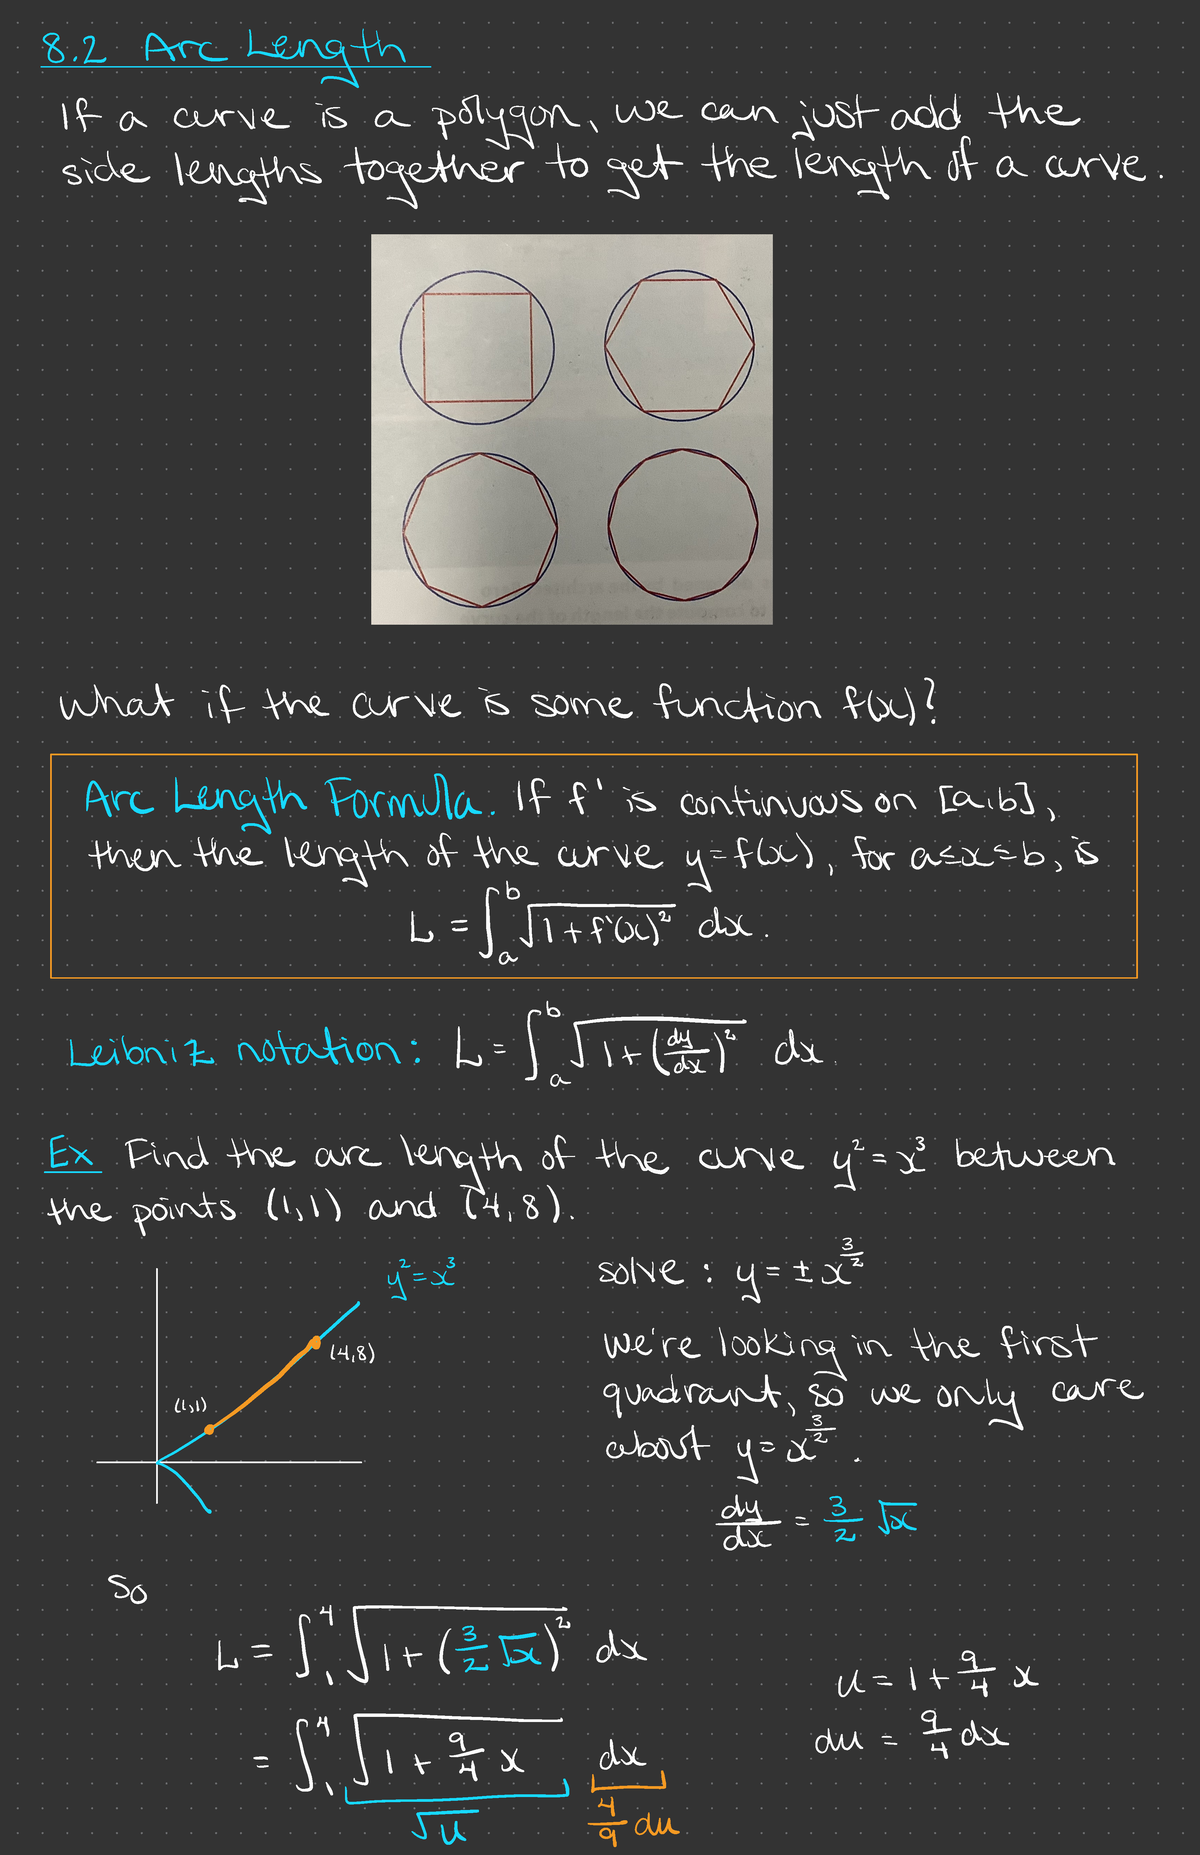 8.2 Arc Length
If a curve is a polygon, we can just add the
side lengths together to get the length of a curve.
What if the curve is some function f(x)?
Arc Length Formula. If f' is continuous on [a,b],
then the length of the curve y=f(x), for a≤x≤b, is
L = ∫ₐᵇ √(1+f'(x)²) dx.
Leibniz notation: L = ∫ₐᵇ √(1+(dy/dx)²) dx
Ex Find the arc length of the curve y²=x³ between
the points (1,1) and (4,8).
y²=x³
(4,8)
(1,1)
solve : y=±x^(3/2)
we're looking in the first
quadrant, so we only care
about y=x^(3/2).
dy/dx = 3/2 √x
So
L = ∫₁⁴ √(1+(3/2 √x)²) dx
= ∫₁⁴ √(1+9/4 x) dx
√u 4/9 du
u = 1+9/4 x
du = 9/4 dx